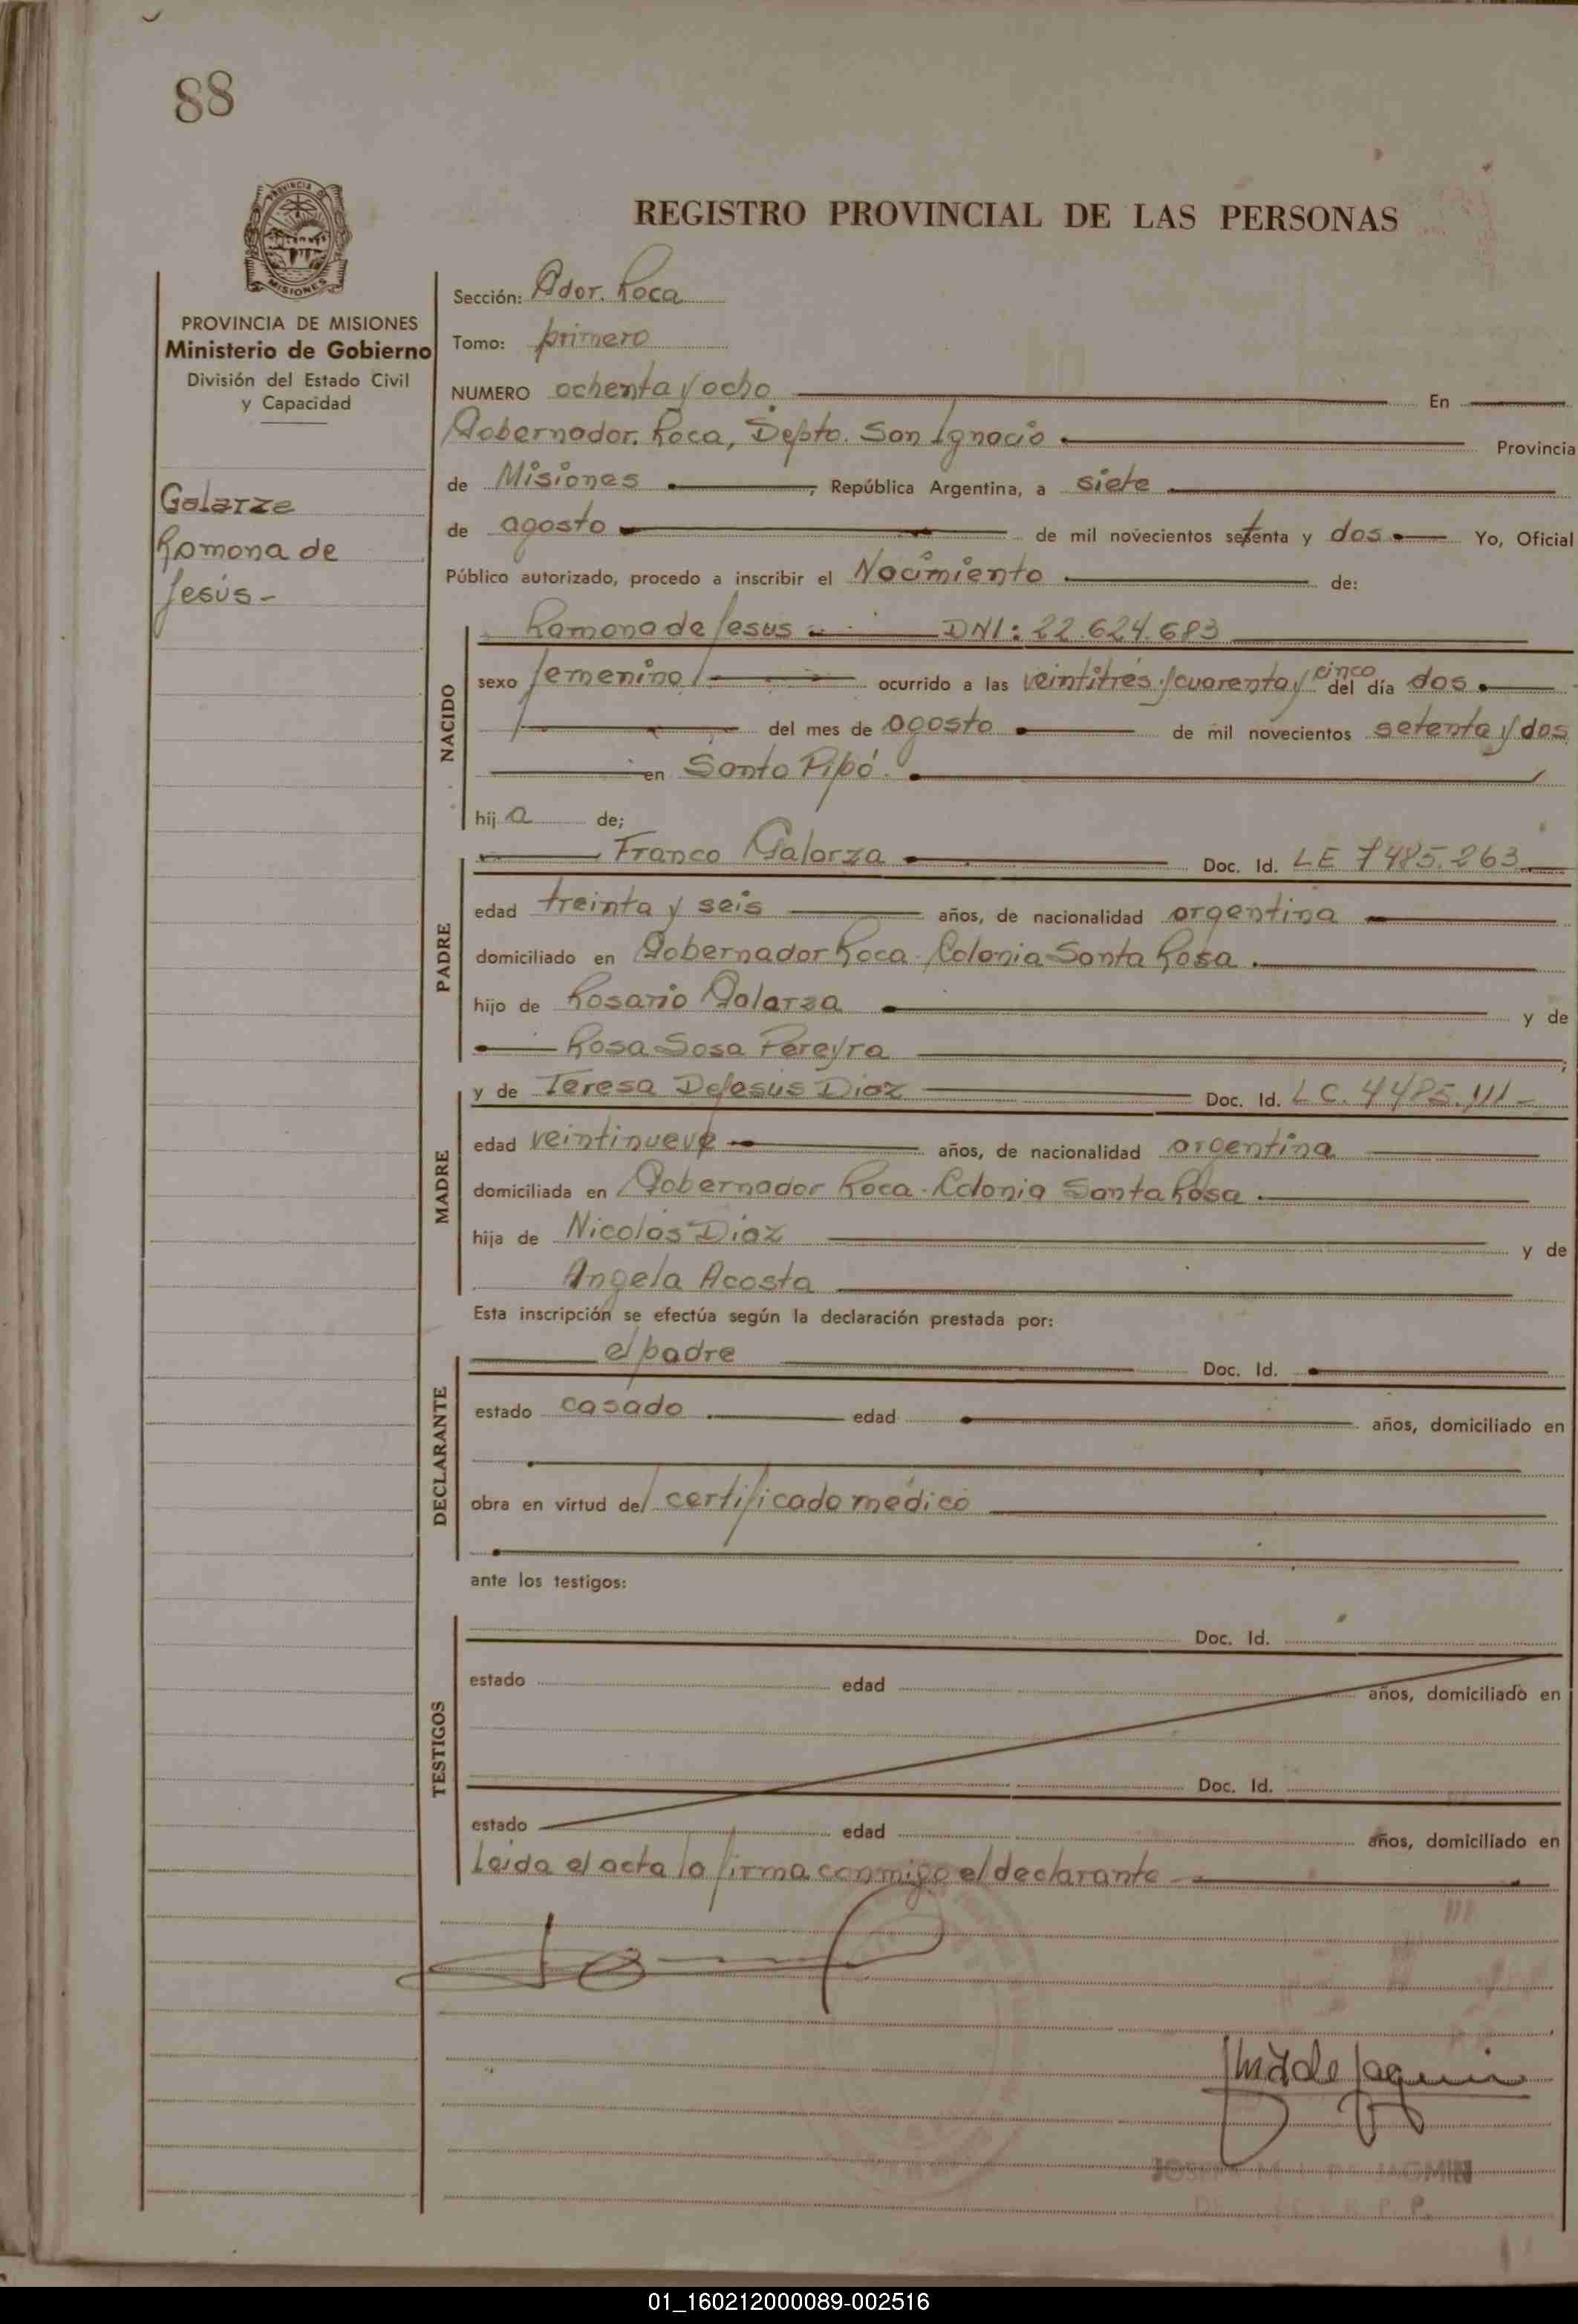 88
REGISTRO PROVINCIAL DE LAS PERSONAS
PROVINCIA DE MISIONES
Ministerio de Gobierno
División del Estado Civil
y Capacidad
Galarze
Ramona de
Jesús -
Sección: Gdor. Roca
Tomo: primero
NUMERO ochenta y ocho En
Gobernador. Roca, Depto. San Ignacio Provincia
de Misiones, República Argentina, a siete
de agosto de mil novecientos setenta y dos Yo, Oficial
Público autorizado, procedo a inscribir el Nacimiento de:
Ramona de Jesus DNI: 22.624.683
NACIDO
sexo femenino ocurrido a las veintitrés y cuarenta y cinco del día dos
del mes de agosto de mil novecientos setenta y dos
en Santo Pipó.
hij a de;
Franco Galarza Doc. Id. LE 7485.263
PADRE
edad treinta y seis años, de nacionalidad argentina
domiciliado en Gobernador Roca - Colonia Santa Rosa.
hijo de Rosario Galarza y de
Rosa Sosa Pereyra
MADRE
y de Teresa DeJesús Diaz Doc. Id. L C. 4485.111 -
edad veintinueve años, de nacionalidad argentina
domiciliada en Gobernador Roca - Colonia Santa Rosa.
hija de Nicolás Diaz y de
Angela Acosta
Esta inscripción se efectúa según la declaración prestada por:
DECLARANTE
el padre Doc. Id.
estado casado edad años, domiciliado en
obra en virtud del certificado médico
ante los testigos:
TESTIGOS
Doc. Id.
estado edad años, domiciliado en
Doc. Id.
estado edad años, domiciliado en
Leida el acta la firma conmigo el declarante
01_160212000089-002516